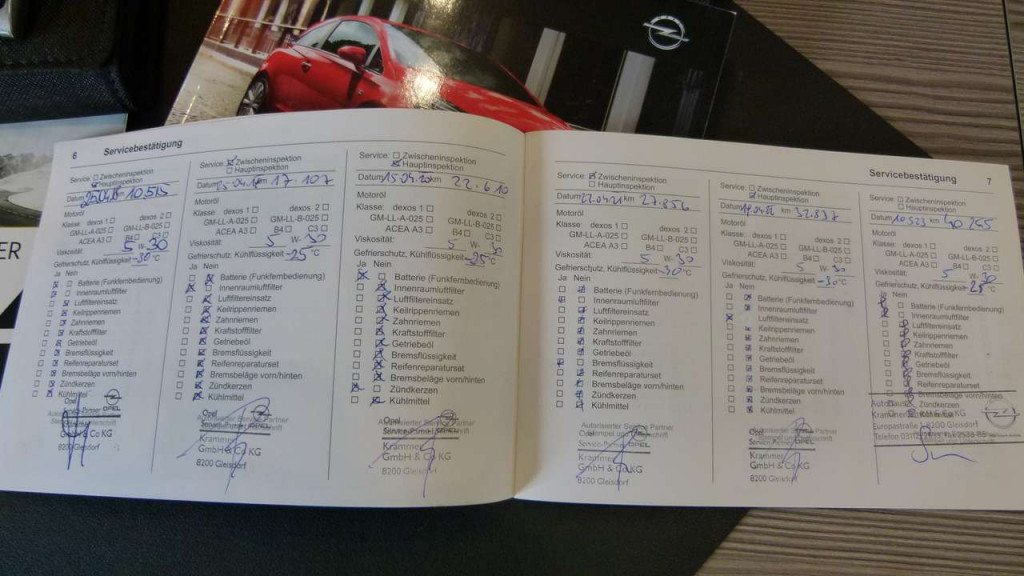 ER
6 Servicebestätigung
Service: ☐ Zwischeninspektion
☒ Hauptinspektion
Datum 25.04.18 10.515
Motoröl
Klasse: dexos 1 ☐ dexos 2 ☐
GM-LL-A-025 ☐ GM-LL-B-025 ☐
ACEA A3 ☐ B4 ☐ C3 ☐
Viskosität: 5 W-30
Gefrierschutz, Kühlflüssigkeit -30 °C
Ja Nein
Batterie (Funkfernbedienung)
Innenraumluftfilter
Luftfiltereinsatz
Keilrippenriemen
Zahnriemen
Kraftstofffilter
Getriebeöl
Bremsflüssigkeit
Reifenreparaturset
Bremsbeläge vorn/hinten
Zündkerzen
Kühlmittel
Opel
GmbH & Co KG
8200 Gleisdorf
Service: ☒ Zwischeninspektion
☐ Hauptinspektion
Datum km 17.107
Motoröl
Klasse: dexos 1 ☐ dexos 2 ☐
GM-LL-A-025 ☐ GM-LL-B-025 ☐
ACEA A3 ☐ B4 ☐ C3 ☐
Viskosität: 5 W-30
Gefrierschutz, Kühlflüssigkeit -25 °C
Ja Nein
Batterie (Funkfernbedienung)
Innenraumluftfilter
Luftfiltereinsatz
Keilrippenriemen
Zahnriemen
Kraftstofffilter
Getriebeöl
Bremsflüssigkeit
Reifenreparaturset
Bremsbeläge vorn/hinten
Zündkerzen
Kühlmittel
Opel
Krammer
GmbH & Co KG
8200 Gleisdorf
Service: ☐ Zwischeninspektion
☒ Hauptinspektion
Datum 15.04.20 km 22.610
Motoröl
Klasse: dexos 1 ☐ dexos 2 ☐
GM-LL-A-025 ☐ GM-LL-B-025 ☐
ACEA A3 ☐ B4 ☐ C3 ☐
Viskosität: 5 W-30
Gefrierschutz, Kühlflüssigkeit -25 °C
Ja Nein
Batterie (Funkfernbedienung)
Innenraumluftfilter
Luftfiltereinsatz
Keilrippenriemen
Zahnriemen
Kraftstofffilter
Getriebeöl
Bremsflüssigkeit
Reifenreparaturset
Bremsbeläge vorn/hinten
Zündkerzen
Kühlmittel
Krammer
GmbH & Co KG
8200 Gleisdorf
Servicebestätigung 7
Service: ☒ Zwischeninspektion
☐ Hauptinspektion
Datum 22.04.21 km 27.856
Motoröl
Klasse: dexos 1 ☐ dexos 2 ☐
GM-LL-A-025 ☐ GM-LL-B-025 ☐
ACEA A3 ☐ B4 ☐ C3 ☐
Viskosität: 5 W-30
Gefrierschutz, Kühlflüssigkeit -30 °C
Ja Nein
Batterie (Funkfernbedienung)
Innenraumluftfilter
Luftfiltereinsatz
Keilrippenriemen
Zahnriemen
Kraftstofffilter
Getriebeöl
Bremsflüssigkeit
Reifenreparaturset
Bremsbeläge vorn/hinten
Zündkerzen
Kühlmittel
Krammer
GmbH & Co KG
8200 Gleisdorf
Service: ☐ Zwischeninspektion
☒ Hauptinspektion
Datum km 32.837
Motoröl
Klasse: dexos 1 ☐ dexos 2 ☐
GM-LL-A-025 ☐ GM-LL-B-025 ☐
ACEA A3 ☐ B4 ☐ C3 ☐
Viskosität 5 W-30
Gefrierschutz, Kühlflüssigkeit -30 °C
Ja Nein
Batterie (Funkfernbedienung)
Innenraumluftfilter
Luftfiltereinsatz
Keilrippenriemen
Zahnriemen
Kraftstofffilter
Getriebeöl
Bremsflüssigkeit
Reifenreparaturset
Bremsbeläge vorn/hinten
Zündkerzen
Kühlmittel
Krammer
GmbH & Co KG
8200 Gleisdorf
Service: ☒ Zwischeninspektion
☐ Hauptinspektion
Datum km 40.265
Motoröl
Klasse: dexos 1 ☐ dexos 2 ☐
GM-LL-A-025 ☐ GM-LL-B-025 ☐
ACEA A3 ☐ B4 ☐ C3 ☐
Viskosität 5 W-30
Gefrierschutz, Kühlflüssigkeit -25 °C
Nein
Batterie (Funkfernbedienung)
Innenraumluftfilter
Luftfiltereinsatz
Keilrippenriemen
Zahnriemen
Kraftstofffilter
Getriebeöl
Bremsflüssigkeit
Reifenreparaturset
Bremsbeläge vorn/hinten
Zündkerzen
8200 Gleisdorf
Telefon